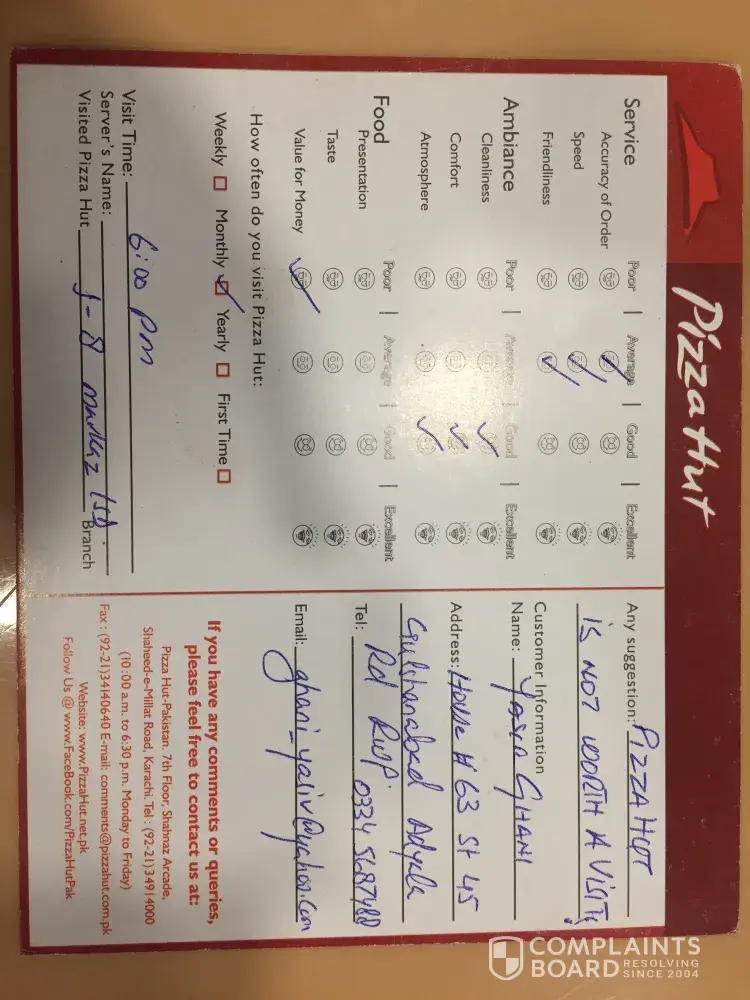 Pizza Hut
Service
Poor | Average | Good | Excellent
Accuracy of Order
Speed
Friendliness
Ambiance
Poor | Average | Good | Excellent
Cleanliness
Comfort
Atmosphere
Food
Poor | Average | Good | Excellent
Presentation
Taste
Value for Money
How often do you visit Pizza Hut:
Weekly Monthly Yearly First Time
Visit Time: 6:00 pm
Server's Name:
Visited Pizza Hut Branch
Any suggestion: PIZZA HUT
IS NOT WORTH A VISIT
Customer Information
Name: GHANI
Address: House # 63 St 45
Gulshanabad Adyala
Rd Rwp.
Tel:
Email:
If you have any comments or queries,
please feel free to contact us at:
Pizza Hut-Pakistan, 7th Floor, Shahnaz Arcade,
Shaheed-e-Millat Road, Karachi. Tel : (92-21)34914000
(10:00 a.m. to 6:30 p.m. Monday to Friday)
Fax : (92-21)34140640 E-mail: comments@pizzahut.com.pk
Website: www.PizzaHut.net.pk
Follow Us @ www.FaceBook.com/PizzaHutPak
COMPLAINTS
BOARD RESOLVING
SINCE 2004